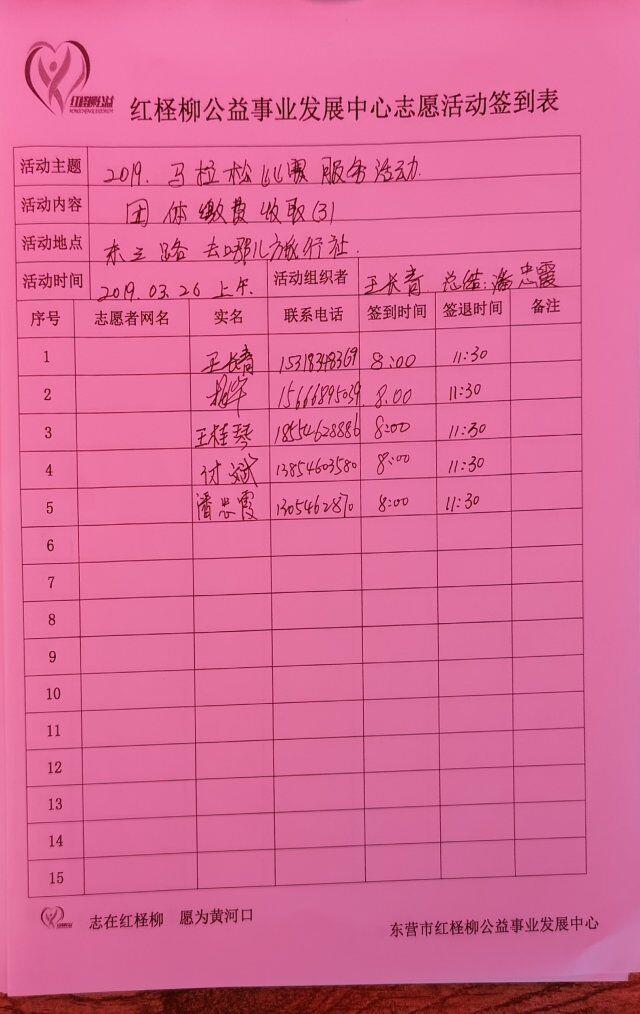 红柽柳公益
红柽柳公益事业发展中心志愿活动签到表
活动主题 2019.马拉松比赛服务活动
活动内容 团体缴费收取(3)
活动地点 东三路去哪儿旅行社.
活动时间 2019.03.26 上午. 活动组织者 王长青 总结:潘忠霞
序号 志愿者网名 实名 联系电话 签到时间 签退时间 备注
1 王长青 15318348369 8:00 11:30
2 15666895039 8.00 11:30
3 王桂琴 18554628886 8:00 11:30
4 付斌 13854603580 8:00 11:30
5 潘忠霞 1305462870 8:00 11:30
6
7
8
9
10
11
12
13
14
15
志在红柽柳 愿为黄河口
东营市红柽柳公益事业发展中心